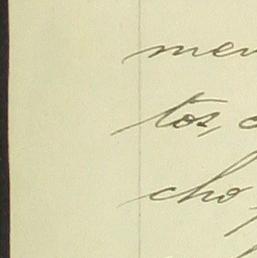 men
tos, c
cho